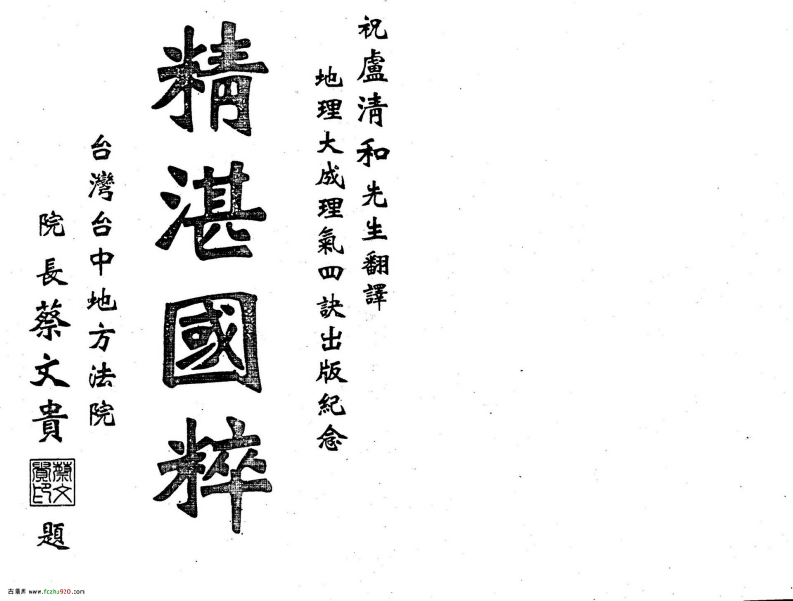 祝盧清和先生翻譯
地理大成理氣四訣出版紀念
精湛國粹
台灣台中地方法院
院長蔡文貴
蔡文貴印
題
古籍库 www.fczhu920.com